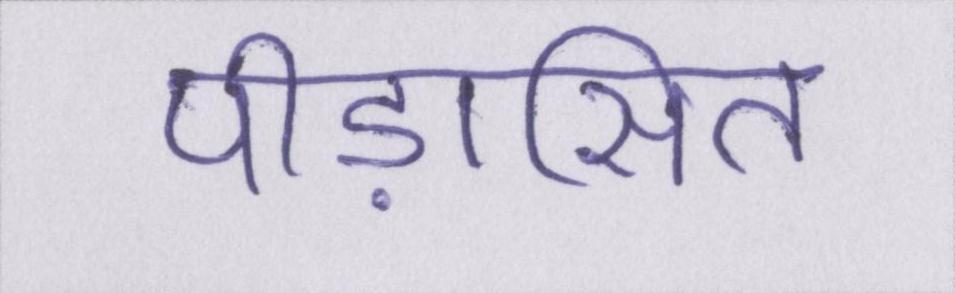 पीड़ासित